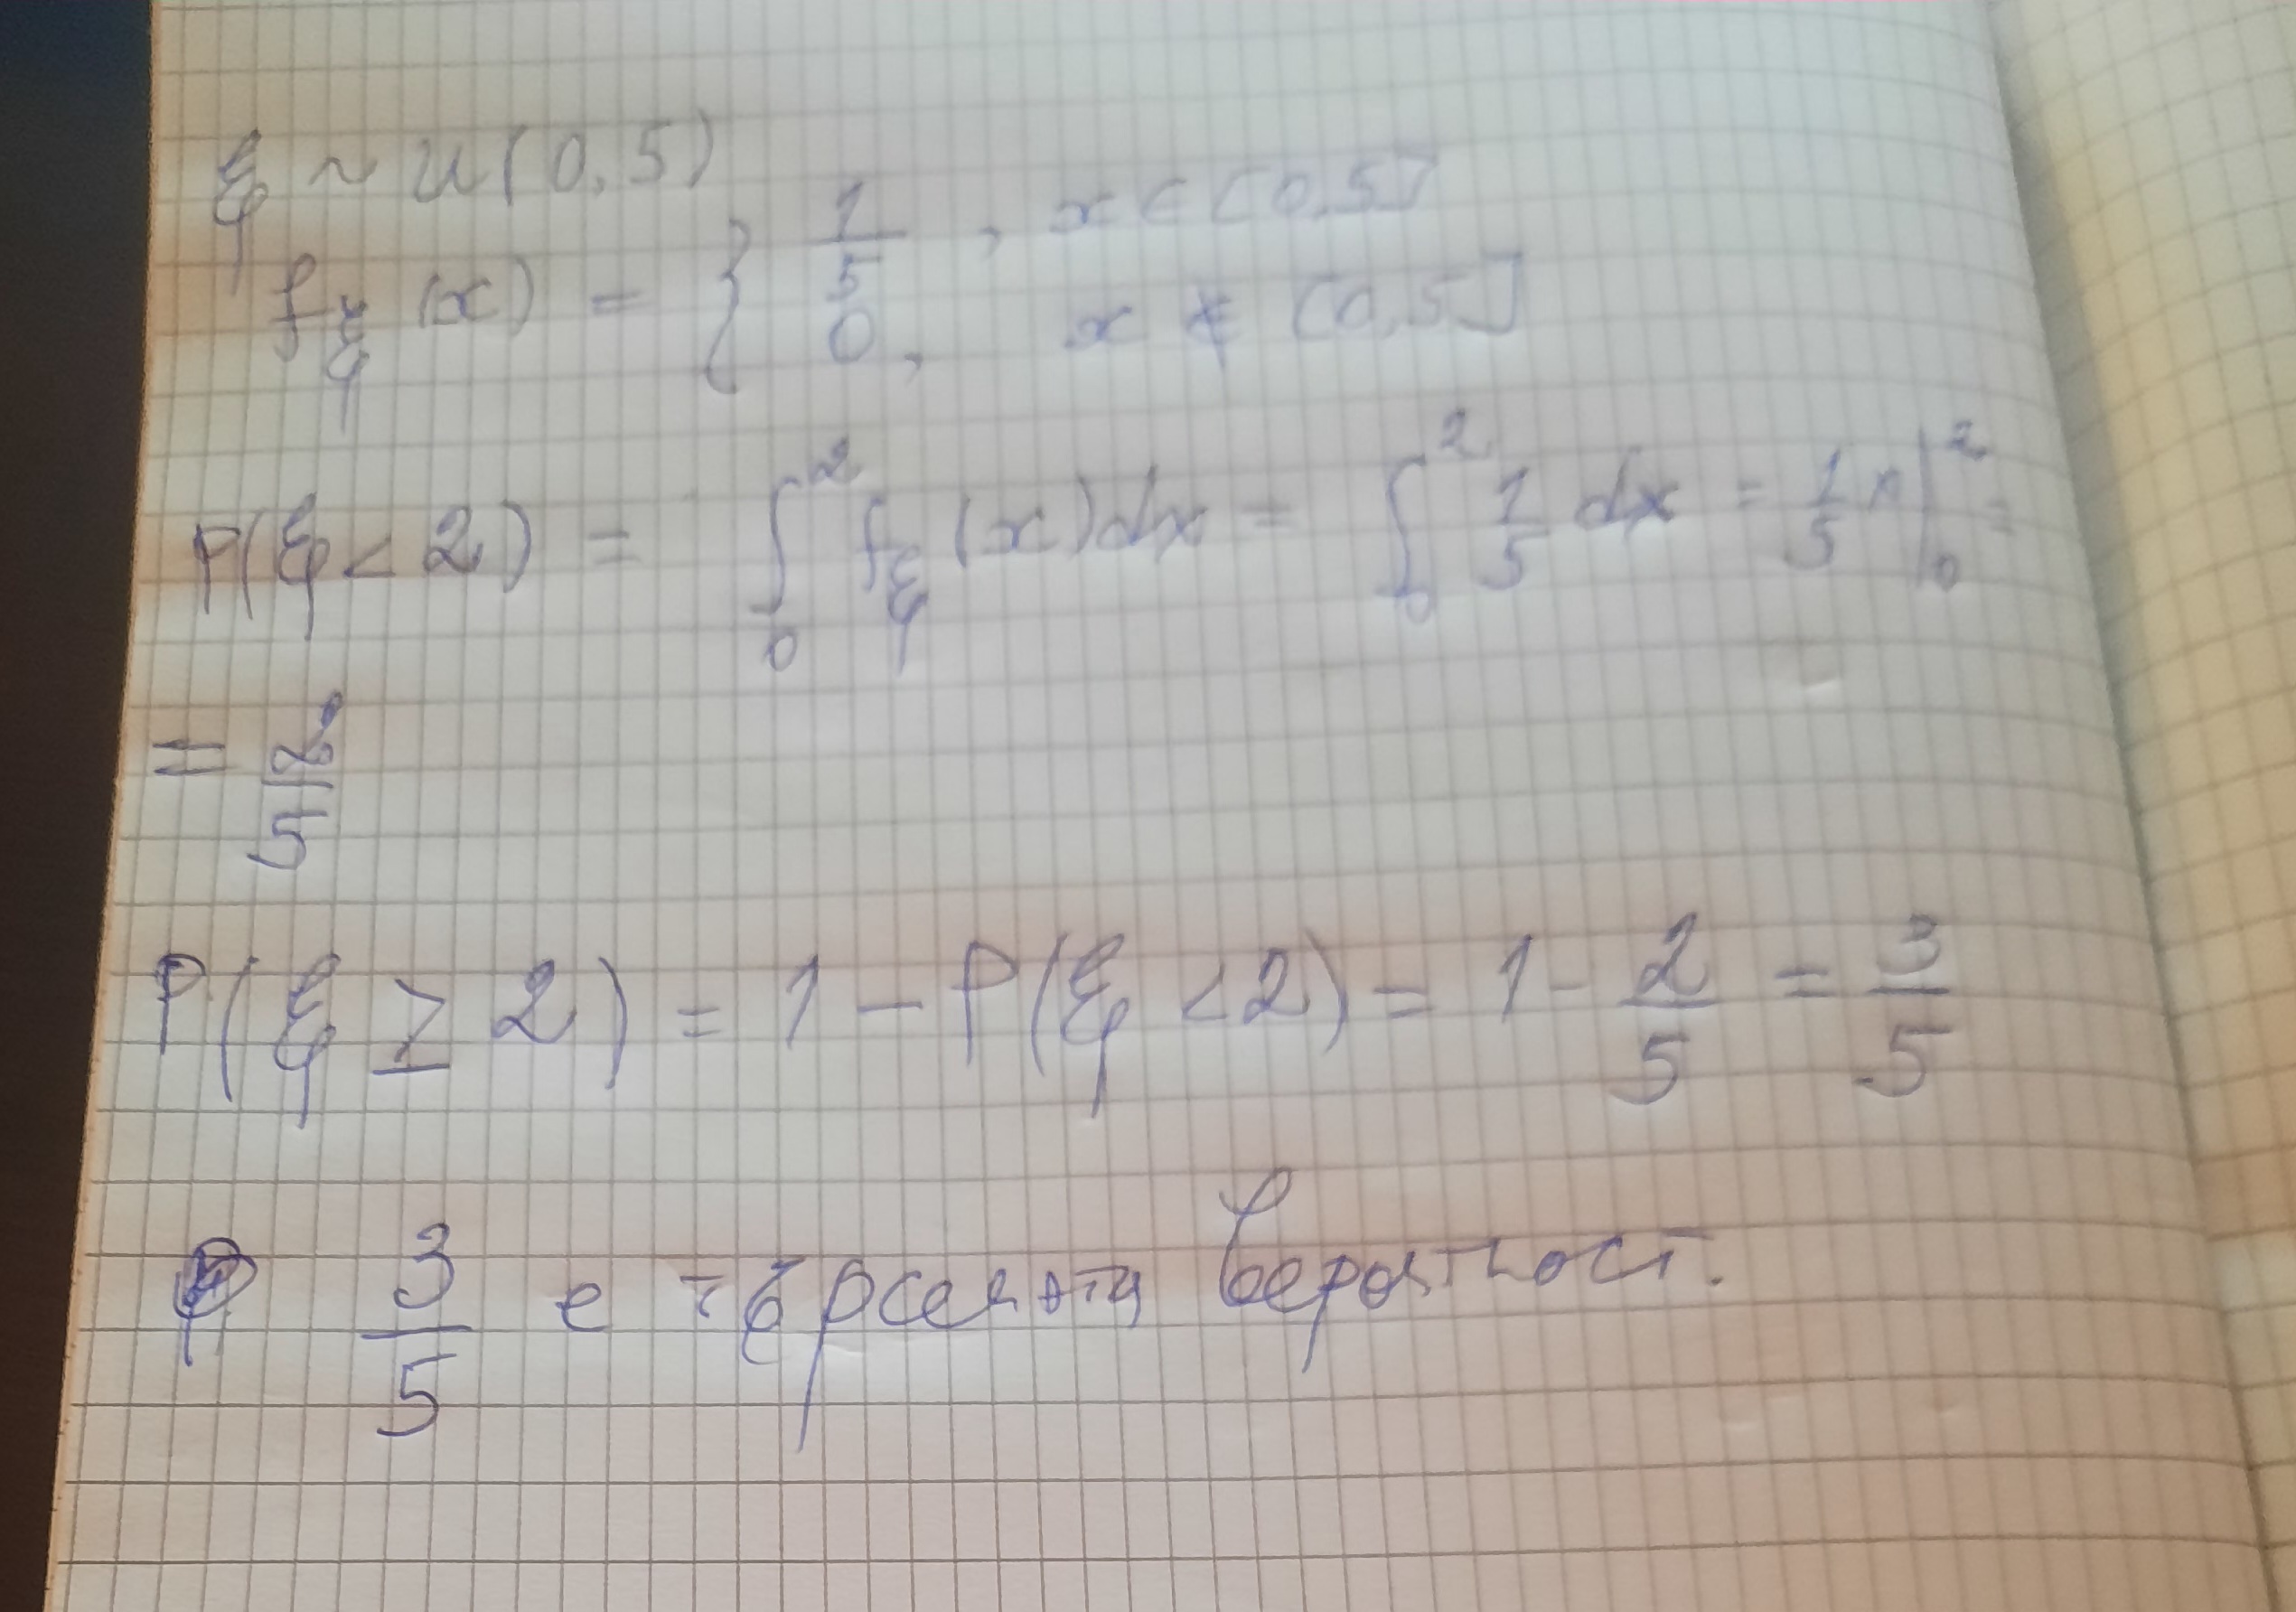 ξ ~ U(0,5)
f_ξ(x) = { 1/5 , x ∈ [0,5]
0, x ∉ [0,5]
P(ξ < 2) = ∫_0^2 f_ξ(x)dx = ∫_0^2 1/5 dx = 1/5 x |_0^2 =
= 2/5
P(ξ ≥ 2) = 1 - P(ξ < 2) = 1 - 2/5 = 3/5
3/5 е търсената вероятност.